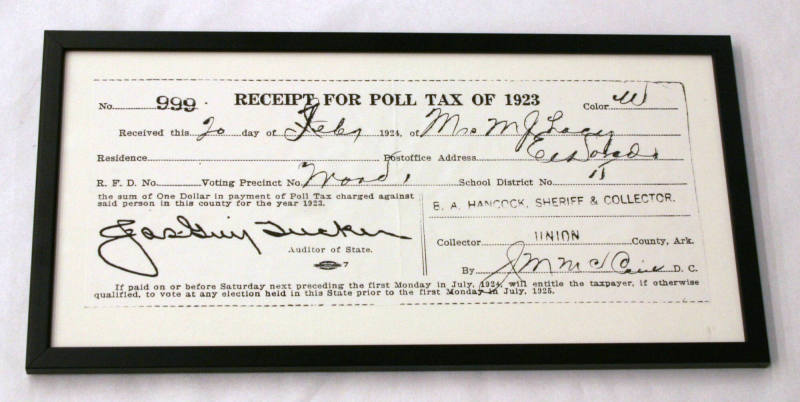 RECEIPT FOR POLL TAX OF 1923
No. 999. Color W
Received this 20 day of Feby 1924, of Mrs M J Lacy
Residence Postoffice Address
R. F. D. No. Voting Precinct No. Ward 1 School District No. 15
the sum of One Dollar in payment of Poll Tax charged against
said person in this county for the year 1923.
B. A. HANCOCK, SHERIFF & COLLECTOR.
Jas Guy Tucker
Auditor of State.
7
Collector UNION County, Ark.
By J M McCain D. C.
If paid on or before Saturday next preceding the first Monday in July, 1924, will entitle the taxpayer, if otherwise
qualified, to vote at any election held in this State prior to the first Monday in July, 1925.